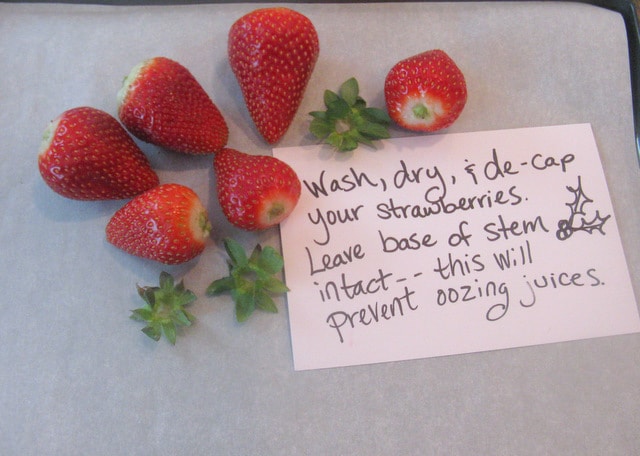 Wash, dry, & de-cap
your strawberries.
Leave base of stem
intact -- this will
prevent oozing juices.